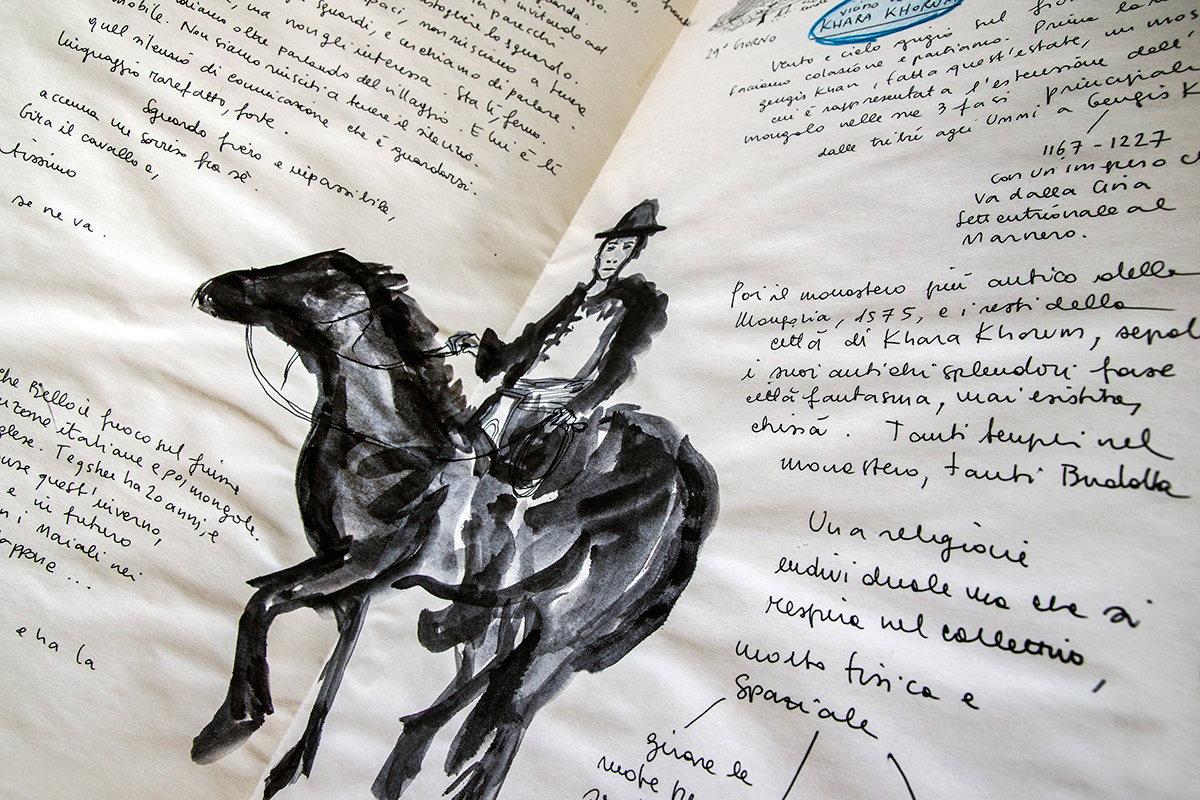 invitando ad
sguardi, e
in parecchi
distogliere lo sguardo.
mobile. Non siamo riusciti a tenere il silenzio.
oltre parlando del villaggio. E lui è lì
ma non gli interessa... Sta lì, fermo.
e cerchiamo di parlare.
non riusciamo a tenere
quel silenzio di comunicazione che è guardarsi.
linguaggio rarefatto, forte.
Sguardo fiero e impassibile,
accenna un sorriso fra sé.
Gira il cavallo e,
tissimo
se ne va.
che Bello il fuoco sul fiume
canzone italiane e poi, mongole.
glese. Tegsher ha 20 anni, e
quest'inverno,
e in futuro
n i maiali nei
appone ...
e ha la
29° Giorno
KHARA KHORUM
Vento e cielo grigio sul
Facciamo colazione e partiamo. Prima
Gengis Khan, fatta quest'estate, un mos
cui è rappresentata l'estensione dell'
mongolo nelle sue 3 fasi principali
dalle tribù agli Unni a Gengis K
1167 - 1227
con un impero c
va dalla Cina
Settentrionale al
Mar nero.
Poi il monastero più antico della
Mongolia, 1575, e i resti della
città di Khara Khorum, sepol
i suoi antichi splendori forse
città fantasma, mai esistita,
chissà. Tanti templi nel
monastero, tanti Buddha
Una religione
individuale ma che si
respira nel collettivo,
molto fisica e
spaziale
girare le
ruote pe